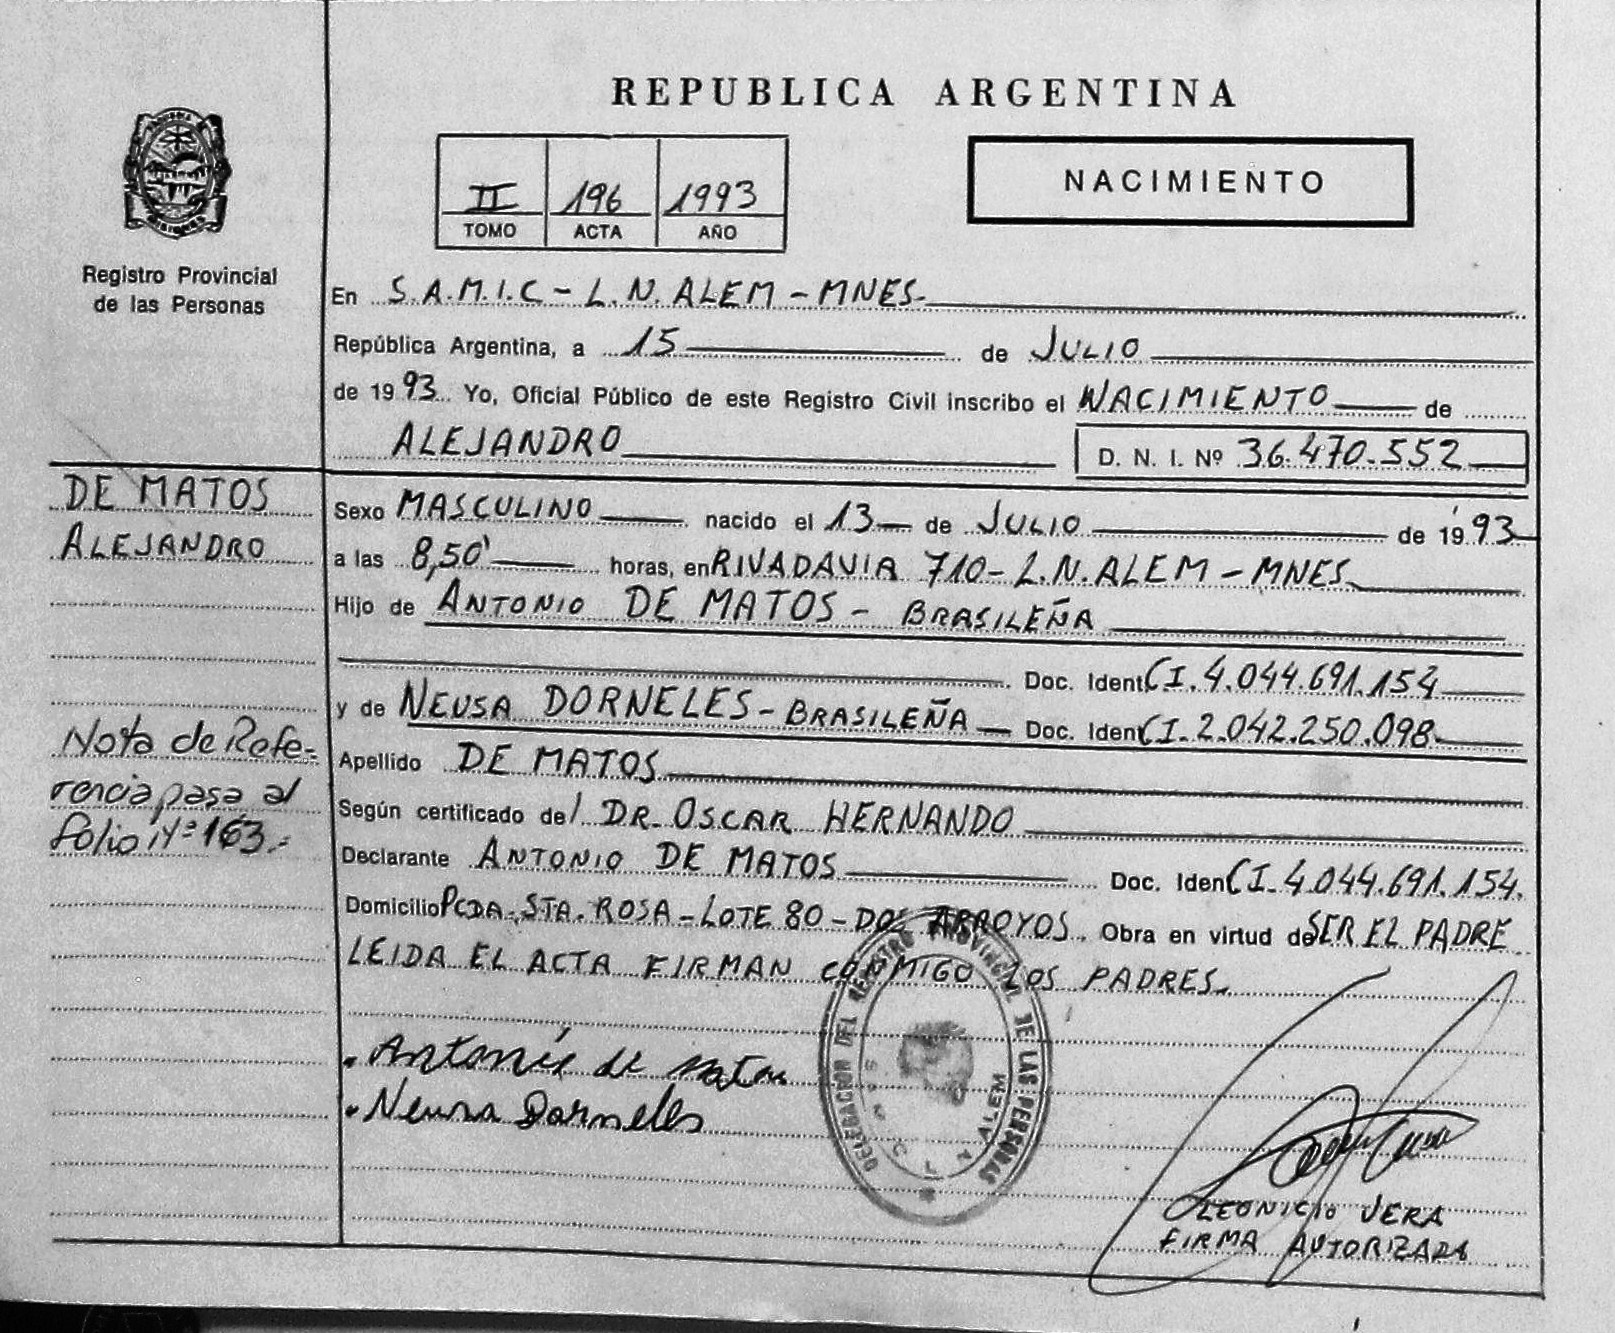 REPUBLICA ARGENTINA
NACIMIENTO
II 196 1993
TOMO ACTA AÑO
Registro Provincial
de las Personas
En S.A.M.I.C - L.N. ALEM - MNES.
República Argentina, a 15 de JULIO
de 1993. Yo, Oficial Público de este Registro Civil inscribo el NACIMIENTO de
ALEJANDRO D. N. I. Nº 36.470.552
DE MATOS
ALEJANDRO
Sexo MASCULINO nacido el 13 de JULIO de 1993
a las 8,50' horas, en RIVADAVIA 710 - L.N. ALEM - MNES.
Hijo de ANTONIO DE MATOS - BRASILEÑA
Doc. Ident CI. 4.044.691.154
y de NEUSA DORNELES - BRASILEÑA Doc. Ident CI. 2.042.250.098
Apellido DE MATOS
Según certificado del DR. OSCAR HERNANDO
Declarante ANTONIO DE MATOS Doc. Iden CI. 4.044.691.154.
Domicilio PCDA. STA. ROSA - LOTE 80 - DOS ARROYOS. Obra en virtud de SER EL PADRE
LEIDA EL ACTA FIRMAN CONMIGO LOS PADRES.
Nota de Refe-
rencia pasa al
folio Nº 163.-
Antonio de Matos
Neusa Dorneles
DELEGACION DEL REGISTRO PROVINCIAL DE LAS PERSONAS
ALEM
LEONICIO VERA
FIRMA AUTORIZADA